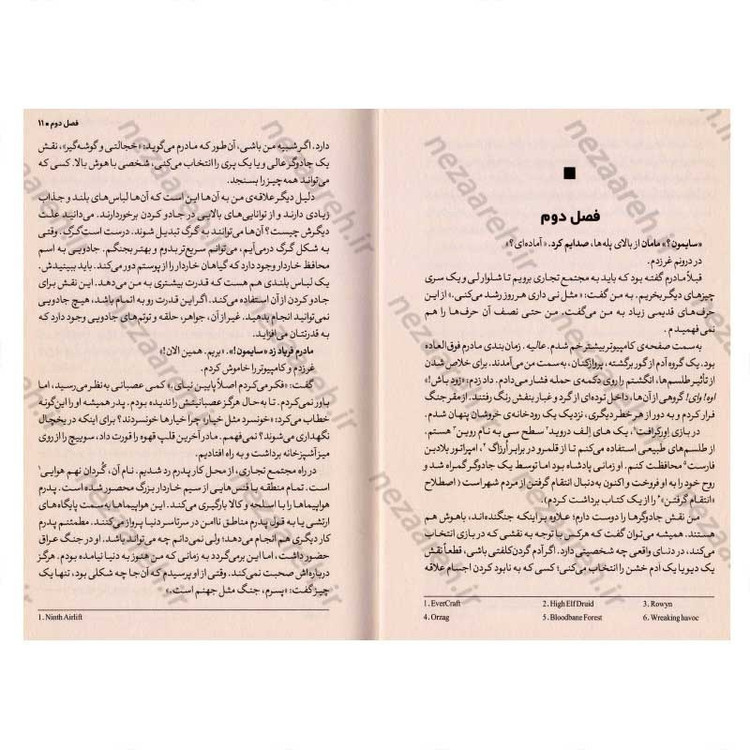 فصل دوم
«سایمون؟» مامان از بالای پله‌ها، صدایم کرد. «آماده‌ای؟»
در درونم غر زدم.
قبلاً مادرم گفته بود که باید به مجتمع تجاری برویم تا شلوار لی و یک سری
چیزهای دیگر بخریم. به من گفت: «مثل نی داری هر روز رشد می‌کنی.» از این
حرف‌های قدیمی زیاد به من می‌گفت. من حتی نصف آن حرف‌ها را هم
نمی فهمیدم.
به سمت صفحه‌ی کامپیوتر بیشتر خم شدم. عالیه. زمان‌بندی مادرم فوق العاده
بود. یک گروه آدم از گور برگشته، پروازکنان، به سمت من می‌آمدند. برای خلاص شدن
از تأثیر طلسم‌ها، انگشتم را روی دکمه‌ی حمله فشار می‌دادم. داد زدم: «زود باش!»
اوه! وای! گروهی از آن‌ها، داخل توده‌ای از گرد و غبار بنفش رنگ رفتند. از مقر جنگ
فرار کردم و به دور از هر خطر دیگری، نزدیک یک رودخانه‌ی خروشان پنهان شدم.
در بازی اورکرافت¹، یک های اِلف دروید² سطح سی به نام روین³ هستم.
از طلسم‌های طبیعی استفاده می‌کنم تا از قلمرو در برابر اُرزاگ⁴، امپراتور بلادبن
فارست⁵ محافظت کنم. او زمانی پادشاه بود اما توسط یک جادوگر گمراه شد و
روح خود را به او فروخت و اکنون به‌دنبال انتقام گرفتن از مردم شهر است (اصطلاح
«انتقام گرفتن»⁶ را از یک کتاب برداشت کردم).
من نقش جادوگرها را دوست دارم؛ علاوه بر اینکه جنگنده‌اند، باهوش هم
هستند. همیشه می‌توان گفت که هرکس با توجه به نقشی که در بازی انتخاب
می‌کند، در دنیای واقعی چه شخصیتی دارد. اگر آدم گردن‌کلفتی باشی، قطعاً نقش
یک دیو یا یک آدم خشن را انتخاب می‌کنی؛ کسی که به نابود کردن اجسام علاقه
1. EverCraft 2. High Elf Druid 3. Rowyn
4. Orzag 5. Bloodbane Forest 6. Wreaking havoc
فصل دوم • ۱۱
دارد. اگر شبیه من باشی، آن‌طور که مادرم می‌گوید: «خجالتی و گوشه‌گیر»، نقش
یک جادوگر عالی و یا یک پری را انتخاب می‌کنی، شخصی با هوش بالا. کسی که
می‌تواند همه چیز را بسنجد.
دلیل دیگر علاقه‌ی من به آن‌ها این است که آن‌ها لباس‌های بلند و جذاب
زیادی دارند و از توانایی‌های بالایی در جادو کردن برخوردارند. می‌دانید علت
دیگرش چیست؟ آن‌ها می‌توانند به گرگ تبدیل شوند. درست است گرگ. وقتی
به شکل گرگ درمی‌آیم، می‌توانم سریع‌تر بدوم و بهتر بجنگم. جادویی به اسم
محافظ خاردار وجود دارد که گیاهان خاردار را از پوستم دور می‌کند. باید ببینیدش.
یک لباس بلندی هم هست که قدرت بیشتری به من می‌دهد. این نقش برای
جادو کردن از آن استفاده می‌کند. اگر این قدرت رو به اتمام باشد، هیچ جادویی
نمی‌توانید انجام بدهید. غیر از آن، جواهر، حلقه و توتم‌های جادویی وجود دارد که
به قدرتتان می‌افزاید.
مادرم فریاد زد «سایمون!». «بریم. همین الان!»
غر زدم و کامپیوتر را خاموش کردم.
گفت: «فکر می‌کردم اصلاً پایین نیای.» کمی عصبانی به‌نظر می‌رسید، اما
باور نمی‌کردم. تا به حال هرگز عصبانیتش را ندیده بودم. پدر همیشه او را این‌گونه
خطاب می‌کرد: «خونسرد مثل خیار» چرا خیارها خونسردند؟ برای اینکه در یخچال
نگهداری می‌شوند؟ نمی‌فهمم. مادر آخرین قلپ قهوه را قورت داد، سوییچ را از روی
میز آشپزخانه برداشت و به راه افتادیم.
در راه مجتمع تجاری، از محل کار پدرم رد شدیم. نام آن، گُردان نهم هوایی¹
است. تمام منطقه با فنس‌هایی از سیم خاردار بزرگ محصور شده است. پدرم
هواپیماها را با اسلحه و کالا بارگیری می‌کند. این هواپیماها به سمت پایگاه‌های
ارتشی یا به قول پدرم مناطق ناامن در سرتاسر دنیا پرواز می‌کنند. مطمئنم پدرم
کار دیگری هم انجام می‌دهد؛ ولی نمی‌دانم چه می‌تواند باشد. او در جنگ عراق
حضور داشت، اما این برمی‌گردد به زمانی که من هنوز به دنیا نیامده بودم. هرگز
درباره‌اش صحبت نمی‌کند. وقتی از او پرسیدم که آن‌جا چه شکلی بود، تنها یک
چیز گفت: «پسرم، جنگ مثل جهنم است.»
1. Ninth Airlift
nezaareh.ir